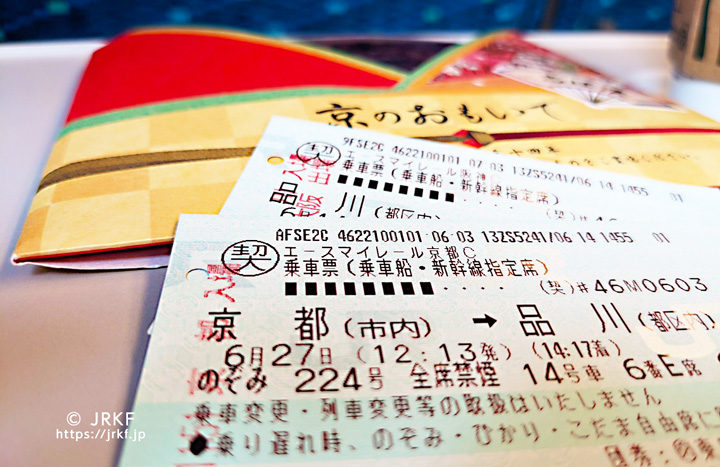 京のおもいで
9FSE2C 4622100101 07 03 13ZS5241/06 14 1455 01
契 エースマイレール阪神
乗車票(乗車船・新幹線指定席)
品川(都区内)
AFSE2C 4622100101 06 03 13ZS5241/06 14 1455 01
契 エースマイレール京都C
乗車票(乗車船・新幹線指定席)
■■■■■■■■・・・・ (契)#46M0603
京都(市内) → 品川(都区内)
6月27日(12:13発)(14:17着)
のぞみ 224号 全席禁煙 14号車 6番E席
乗車変更・列車変更等の取扱はいたしません
●乗り遅れ時、のぞみ・ひかり・こだま自由席に
© JRKF
https://jrkf.jp